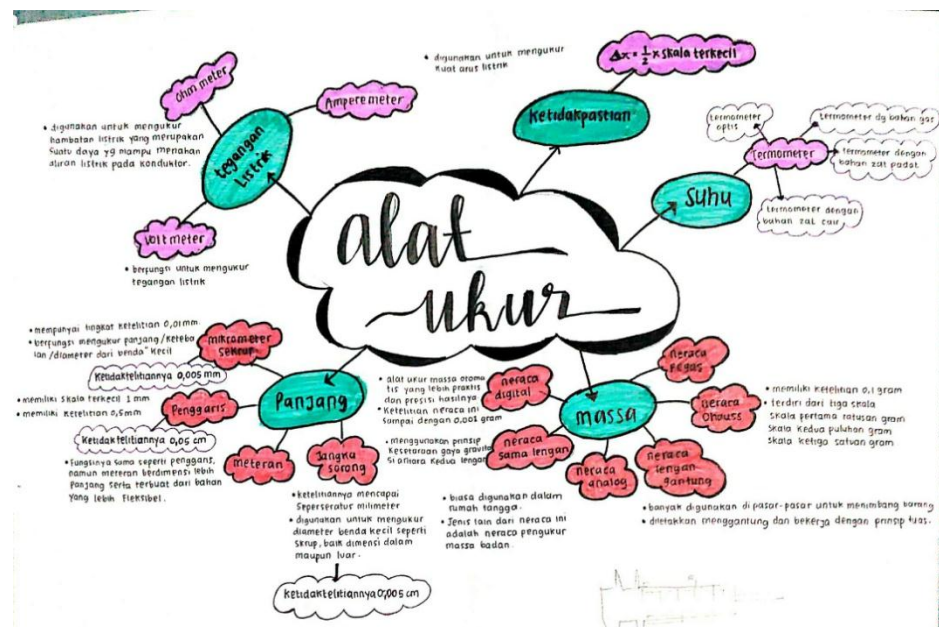 alat
ukur
tegangan
Listrik
Ohm meter
• digunakan untuk mengukur
hambatan listrik yang merupakan
suatu daya yg mampu menahan
aliran listrik pada konduktor.
Ampere meter
• digunakan untuk mengukur
kuat arus listrik
Volt meter
• berfungsi untuk mengukur
tegangan listrik
Ketidakpastian
Δx = 1/2 x skala terkecil
Suhu
termometer
termometer
optis
termometer dg bahan gas
termometer dengan
bahan zat padat
termometer dengan
bahan zat cair
Panjang
mikrometer
sekrup
• mempunyai tingkat ketelitian 0,01 mm.
• berfungsi mengukur panjang/keteba
lan/diameter dari benda" kecil
Ketidaktelitiannya 0,005 mm
Penggaris
• memiliki skala terkecil 1 mm
• memiliki ketelitian 0,5mm
Ketidaktelitiannya 0,05 cm
meteran
• Fungsinya sama seperti penggaris,
namun meteran berdimensi lebih
panjang serta terbuat dari bahan
yang lebih fleksibel.
Jangka
sorong
• ketelitiannya mencapai
seperseratus milimeter
• digunakan untuk mengukur
diameter benda kecil seperti
skrup, baik dimensi dalam
maupun luar.
Ketidaktelitiannya 0,005 cm
massa
neraca
digital
• alat ukur massa otoma
tis yang lebih praktis
dan presisi hasilnya
• Ketelitian neraca ini
sampai dengan 0,001 gram
neraca
sama lengan
• menggunakan prinsip
kesetaraan gaya gravita
si antara kedua lengan
neraca
analog
• biasa digunakan dalam
rumah tangga.
• Jenis lain dari neraca ini
adalah neraca pengukur
massa badan.
neraca
lengan
gantung
• banyak digunakan di pasar-pasar untuk menimbang barang
• diletakkan menggantung dan bekerja dengan prinsip tuas.
neraca
Ohauss
• memiliki ketelitian 0,1 gram
• terdiri dari tiga skala
skala pertama ratusan gram
skala kedua puluhan gram
skala ketiga satuan gram
neraca
pegas